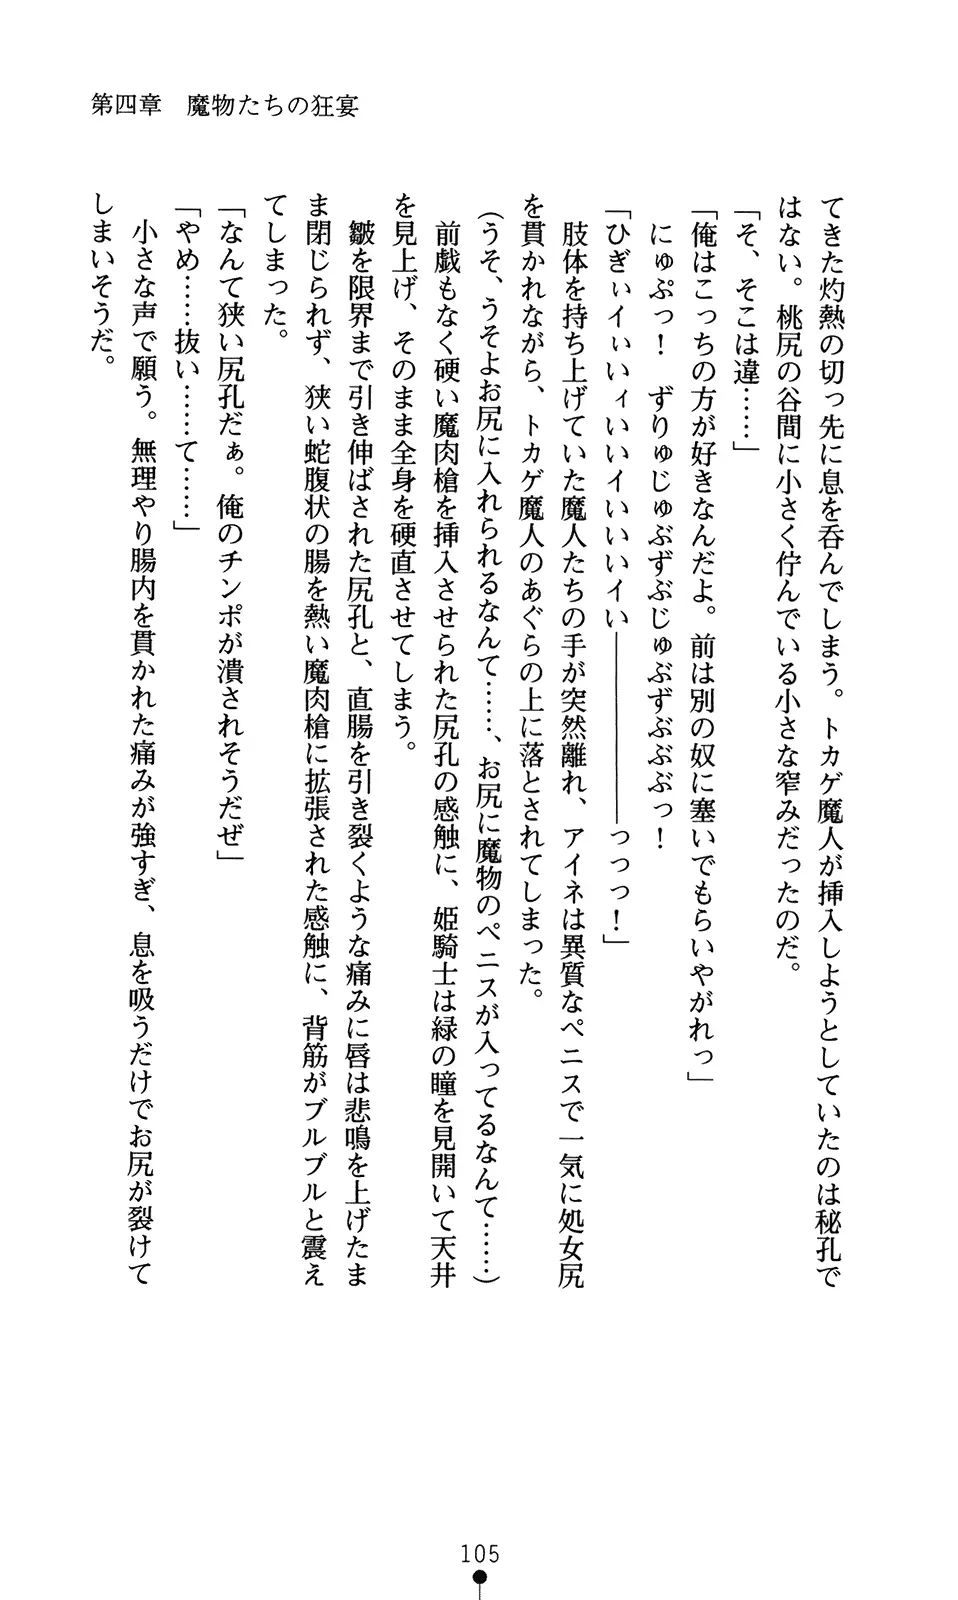 第四章　魔物たちの狂宴
てきた灼熱の切っ先に息を呑んでしまう。トカゲ魔人が挿入しようとしていたのは秘孔で
はない。桃尻の谷間に小さく佇んでいる小さな窄みだったのだ。
「そ、そこは違……」
「俺はこっちの方が好きなんだよ。前は別の奴に塞いでもらいやがれっ」
　にゅぷっ！　ずりゅじゅぶずぶじゅぶずぶぶぶっ！
「ひぎぃイぃいィいいイいいいイい――――――っっっ！」
　肢体を持ち上げていた魔人たちの手が突然離れ、アイネは異質なペニスで一気に処女尻
を貫かれながら、トカゲ魔人のあぐらの上に落とされてしまった。
（うそ、うそよお尻に入れられるなんて……、お尻に魔物のペニスが入ってるなんて……）
　前戯もなく硬い魔肉槍を挿入させられた尻孔の感触に、姫騎士は緑の瞳を見開いて天井
を見上げ、そのまま全身を硬直させてしまう。
　皺を限界まで引き伸ばされた尻孔と、直腸を引き裂くような痛みに唇は悲鳴を上げたま
ま閉じられず、狭い蛇腹状の腸を熱い魔肉槍に拡張された感触に、背筋がブルブルと震え
てしまった。
「なんて狭い尻孔だぁ。俺のチンポが潰されそうだぜ」
「やめ……抜い……て……」
　小さな声で願う。無理やり腸内を貫かれた痛みが強すぎ、息を吸うだけでお尻が裂けて
しまいそうだ。
105